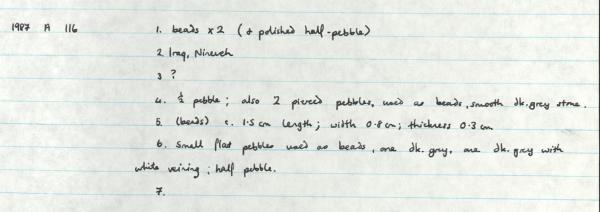 1987 A 116 1. beads x 2 (& polished half-pebble)
2 Iraq, Nineveh
3 ?
4. ½ pebble; also 2 pierced pebbles, used as beads, smooth dk.grey stone.
5. (beads) c. 1.5 cm length; width 0.8 cm; thickness 0.3 cm
6. Small flat pebbles used as beads, one dk. grey, one dk. grey with
white veining; half pebble.
7.